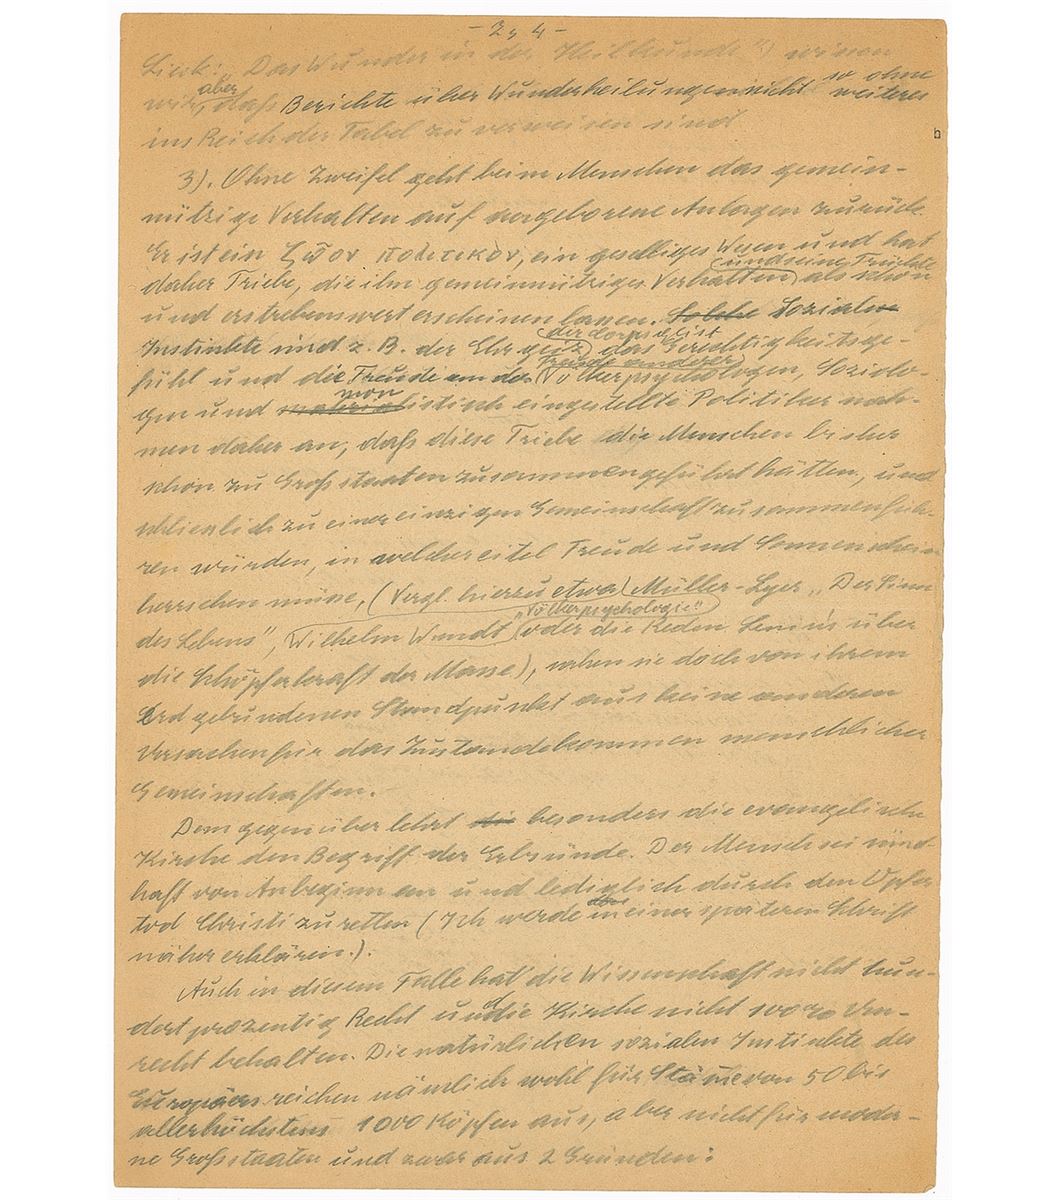 - 2, 4 -
Liek: „Das Wunder in der Heilkunde") wissen
wir, aber daß Berichte über Wunderheilungen nicht so ohne weiteres
ins Reich der Fabel zu verweisen sind
3). Ohne Zweifel geht beim Menschen das gemein-
nützige Verhalten auf angeborene Anlagen zurück.
Er ist ein ζῷον πολιτικόν, ein geselliges Wesen und hat
daher Triebe, die ihm gemeinnütziges Verhalten und seine Früchte als schön
und erstrebenswert erscheinen lassen. Solche Soziale
Instinkte sind z.B. der Ehrgeiz, der Corpsgeist das Gerechtigkeitsge-
fühl und die Freude an der Freude anderer Völkerpsychologen, Soziolo-
gen und monistisch eingestellte Politiker nah-
men daher an, daß diese Triebe die Menschen bisher
schon zu Großstaaten zusammengeführt hätten, und
schliesslich zu einer einzigen Gemeinschaft zusammenfüh-
ren würden, in welcher eitel Freude und Sonnenschein
herrschen müsse, (Vergl. hierzu etwa Müller-Lyer „Der Sinn
des Lebens", Wilhelm Wundt „Völkerpsychologie" oder die Reden Lenin's über
die Schöpferkraft der Masse), sahen sie doch von ihrem
Erdgebundenen Standpunkt aus keine anderen
Ursachen für das Zustandekommen menschlicher
Gemeinschaften.
Dem gegenüber lehrt die besonders die evangelische
Kirche den Begriff der Erbsünde. Der Mensch sei sünd-
haft von Anbeginn an und lediglich durch den Opfer-
tod Christi zu retten (Ich werde das in einer späteren Schrift
näher erklären.).
Auch in diesem Falle hat die Wissenschaft nicht hun-
dertprozentig Recht und die Kirche nicht 100% Un-
recht behalten. Die natürlichen sozialen Instinkte des
Europäers reichen nämlich wohl für Stämme von 50 bis
allerhöchstens 1000 Köpfen aus, aber nicht für moder-
ne Großstaaten und zwar aus 2 Gründen: